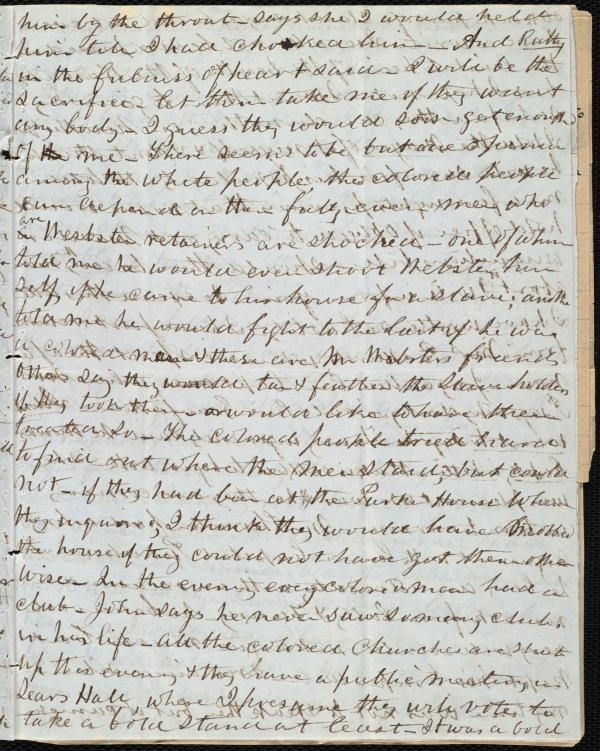 him by the throat - says she I would held
him till I had choaked him - And Ruthy
in the fulness of heart said - I will be the
sacrifice - let them take me if they want
any body - I guess they would soon get enough
of me - There seems to be but one opinion
among the white people, the colored people
can depend on them fully, even men who
are Webster retainers are shocked - one of whom
told me he would even shoot Webster him
self, if he came to his house for a slave; another
told me he would fight to the last if he was
a colored man & these are Mr Websters friends
Others say they would tar & feather the Slave holders
if they took them - or would like to have them
treated so - The colored people tried
to find out where the men staid, but could
not - if they had been at the Parker House where
they inquired, I think they would have mobbed
the house if they could not have got them other
wise - In the evening every colored man had a
club - John says he never saw so many clubs
in his life - All the colored Churches are shut
up this evening & they have a public meeting in
Sears Hall, where I presume they will vote to
take a bold stand at least - It was a bold